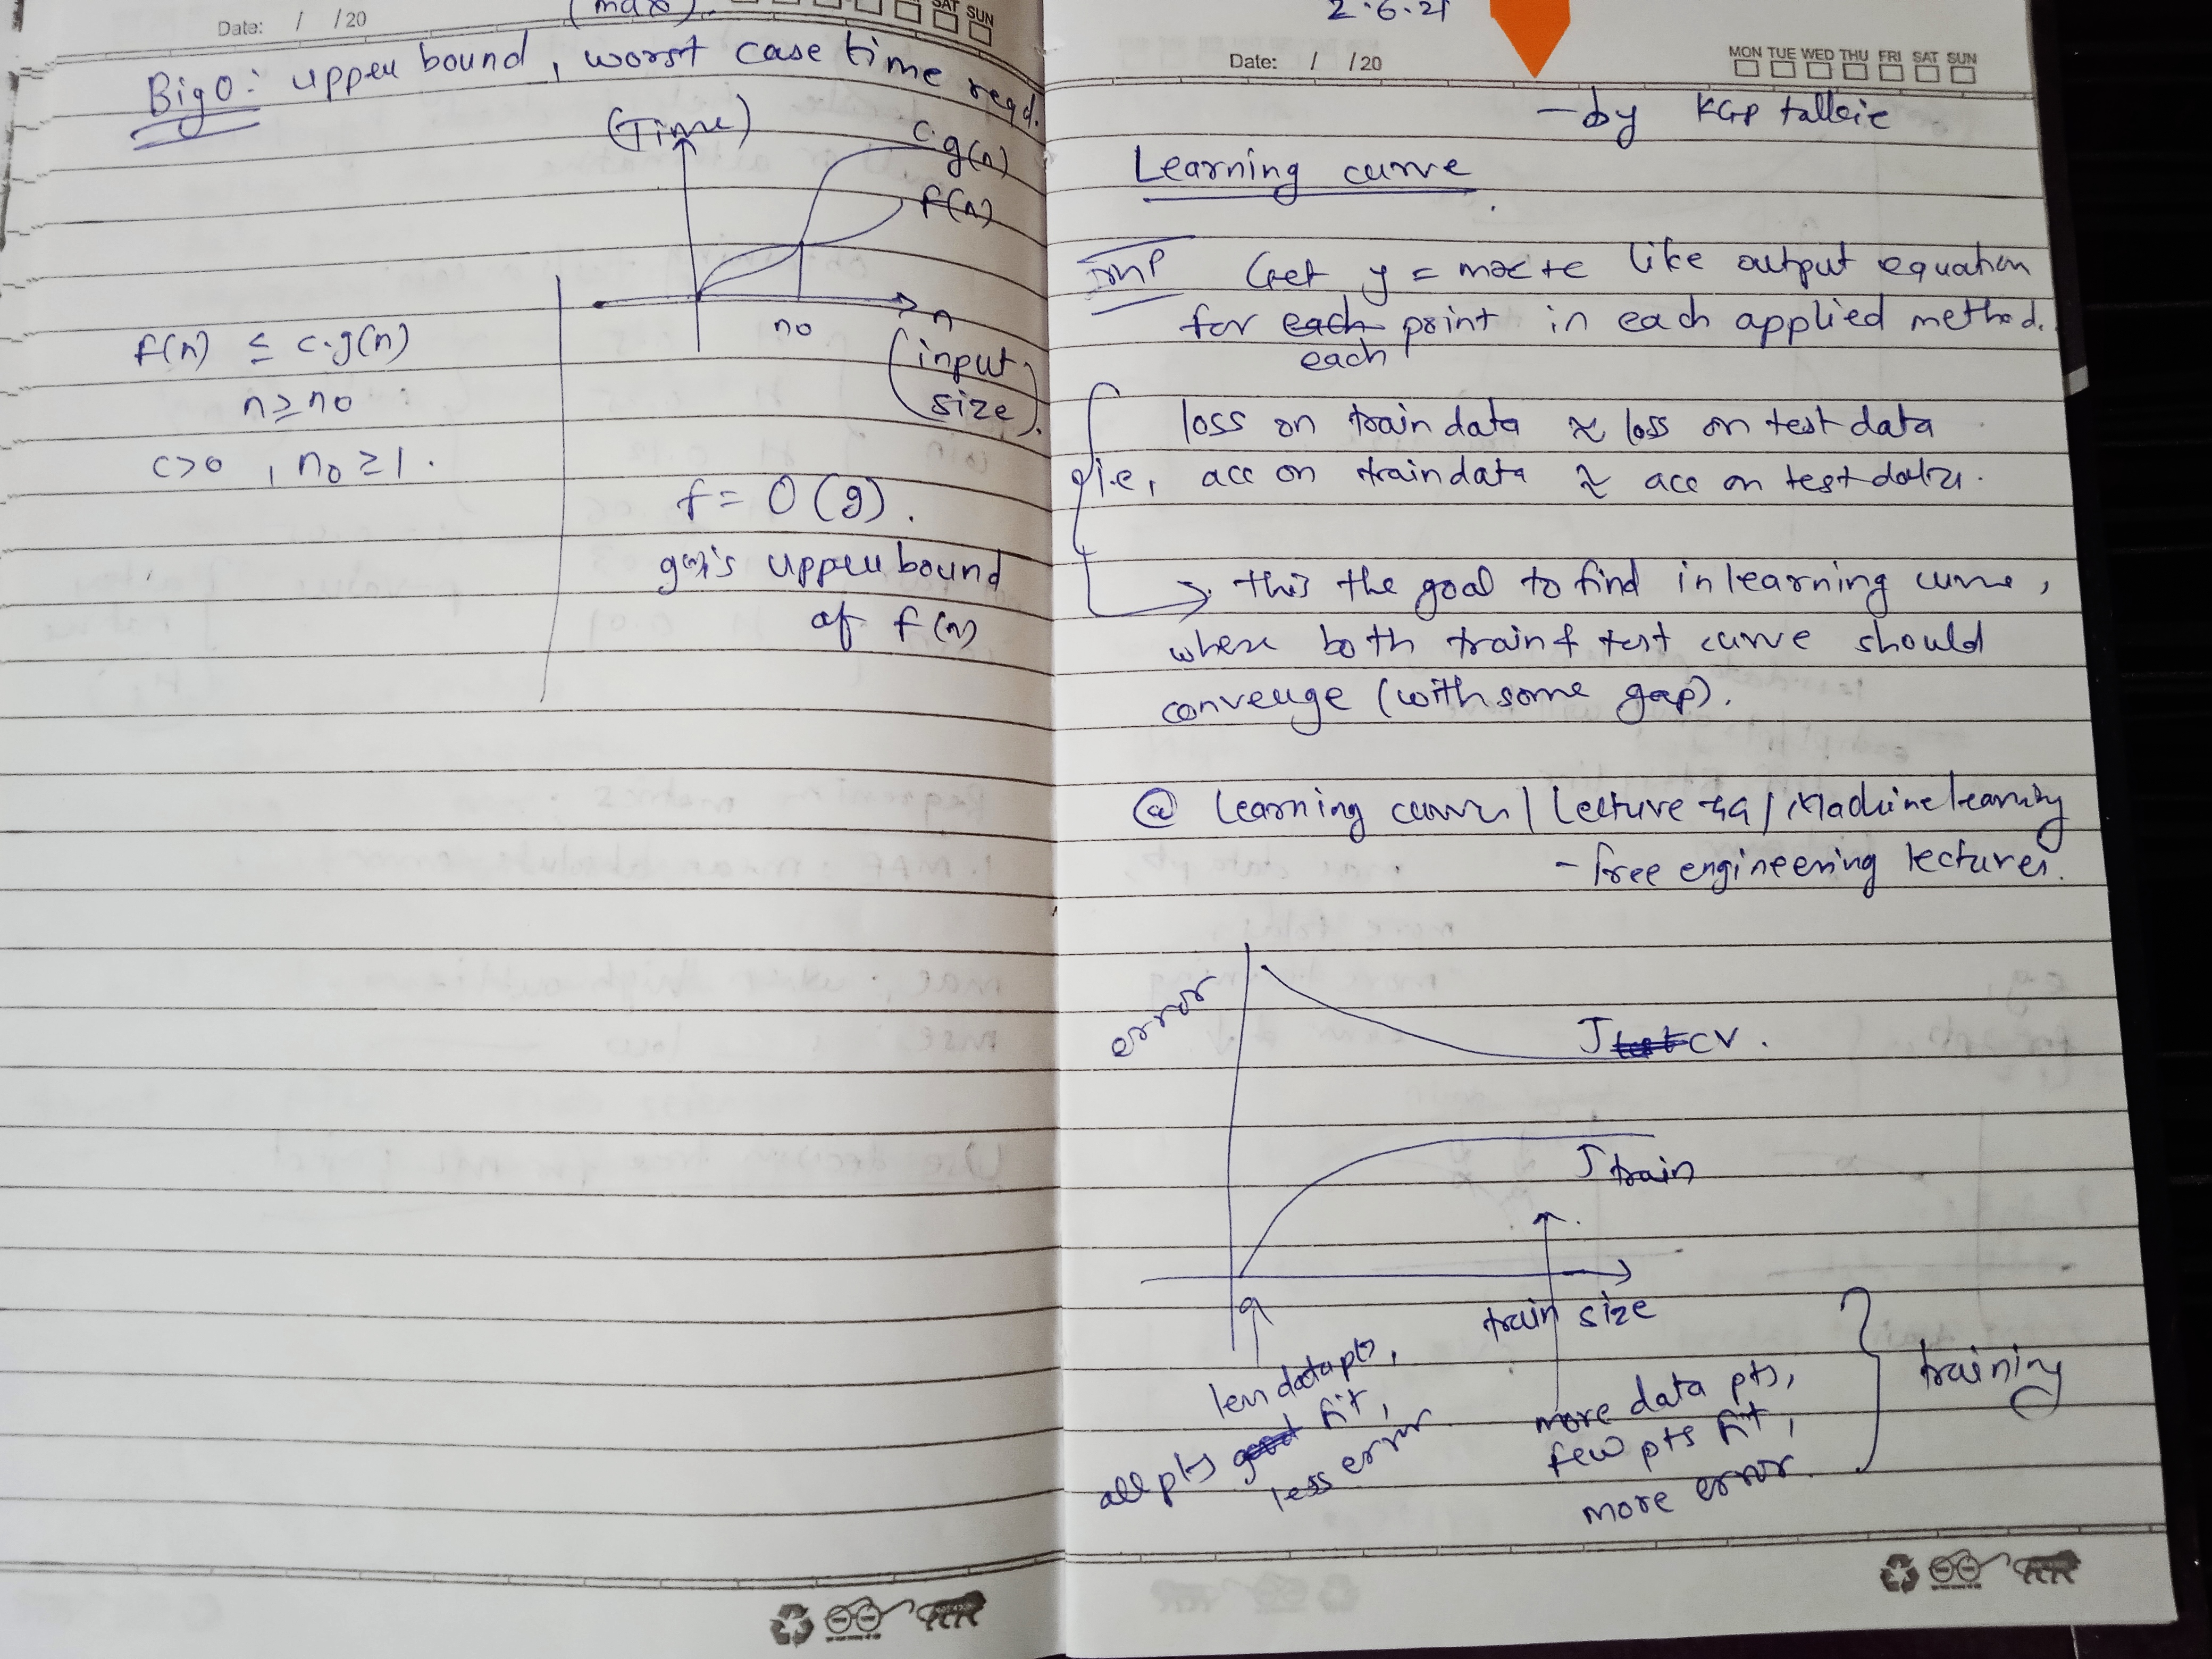 Date: / /20
(max).
SAT SUN
Big O: upper bound, worst case time reqd.
(Time)
c.g(n)
f(n)
n
n0
(input size).
f(n) ≤ c.g(n)
n ≥ n0
c>0 , n0 ≥ 1.
f = O(g).
g(n) is upper bound
of f(n)
2.6.21
Date: / /20
MON TUE WED THU FRI SAT SUN
- by KGP talkie
Learning curve
Imp Get y = mx+c like output equation
for each point in each applied method.
each
loss on train data ≈ loss on test data
i.e, acc on train data ≈ acc on test data.
→ this the goal to find in learning curve,
where both train & test curve should
converge (with some gap).
@ Learning curve | Lecture | Machine learning
- free engineering lectures.
error
J test CV.
J train
train size
less data pts,
all pts good fit,
less error
more data pts,
few pts fit,
more error.
training